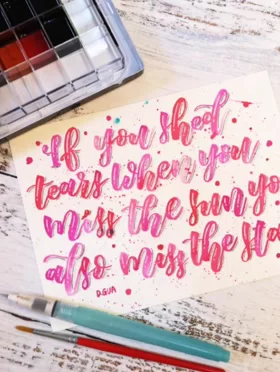 If you shed
tears when you
miss the sun you
also miss the sta
D.GUA